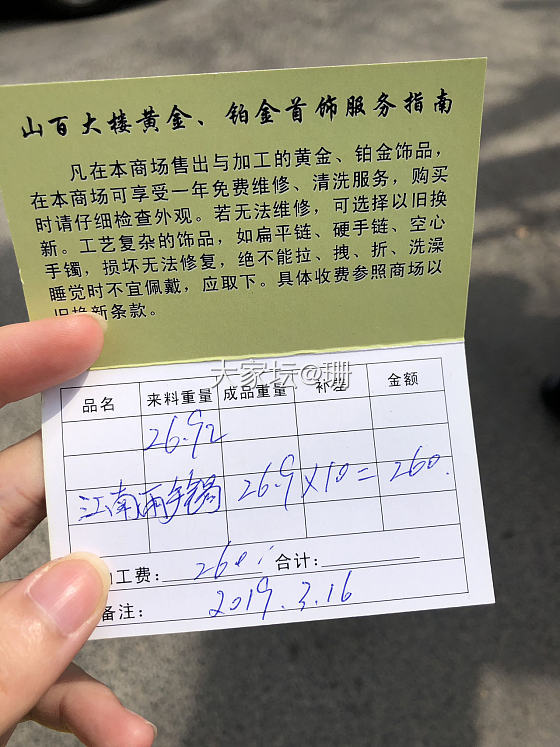 山百大楼黄金、铂金首饰服务指南
凡在本商场售出与加工的黄金、铂金饰品，
在本商场可享受一年免费维修、清洗服务，购买
时请仔细检查外观。若无法维修，可选择以旧换
新。工艺复杂的饰品，如扁平链、硬手链、空心
手镯，损坏无法修复，绝不能拉、拽、折、洗澡
睡觉时不宜佩戴，应取下。具体收费参照商场以
旧换新条款。
大家坛@珊
品名 来料重量 成品重量 补差 金额
26.92
江南雨手镯 26.9×10= 260.
加工费: 260. 合计:
备注: 2019.3.16